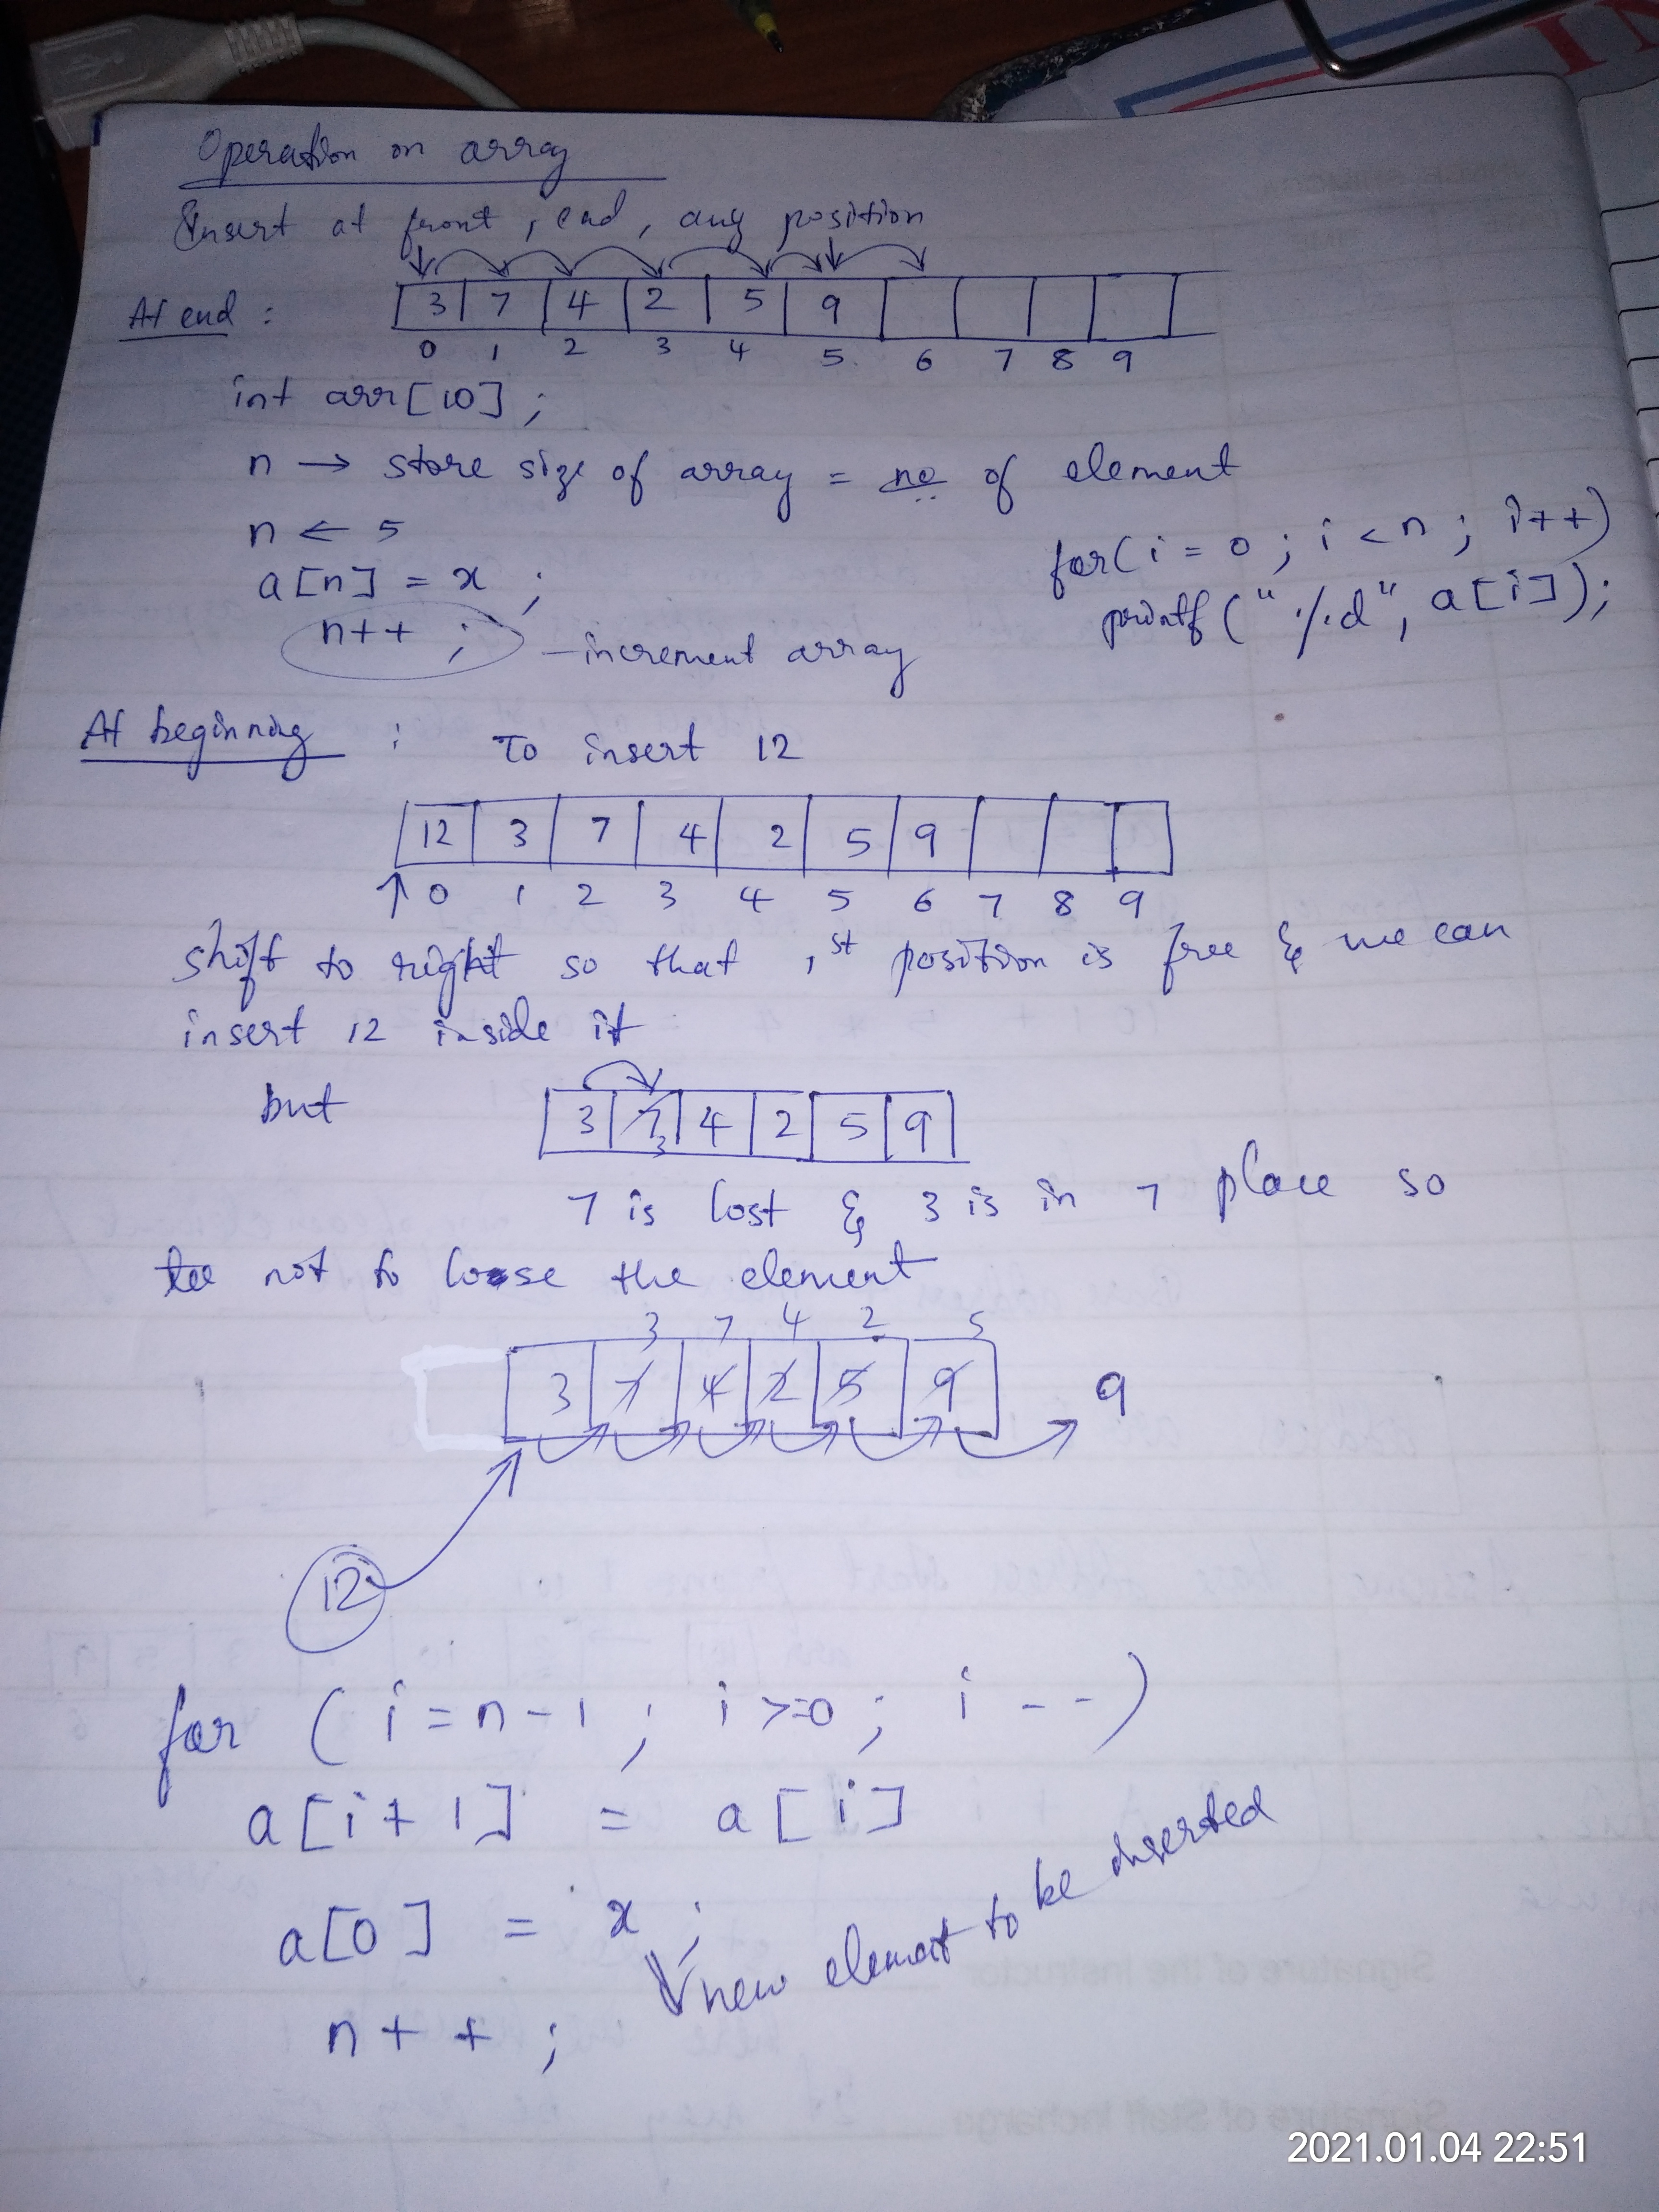 Operation on array
Insert at front, end, any position
At end :
3 7 4 2 5 9
0 1 2 3 4 5 6 7 8 9
int arr[10];
n → store size of array = no of element
n ← 5
a[n] = x ;
n++ ; — increment array
for(i = 0 ; i < n ; i++)
printf("%d", a[i]);
At beginning : To insert 12
12 3 7 4 2 5 9
0 1 2 3 4 5 6 7 8 9
shift to right so that 1st position is free & we can
insert 12 inside it
but
3 7 4 2 5 9
3
7 is lost & 3 is in 7 place so
not to loose the element
3 7 4 2 5
3 7 4 2 5 9 9
12
for (i = n-1 ; i >=0 ; i --)
a[i+1] = a[i]
a[0] = x ;
new element to be inserted
n++ ;
2021.01.04 22:51